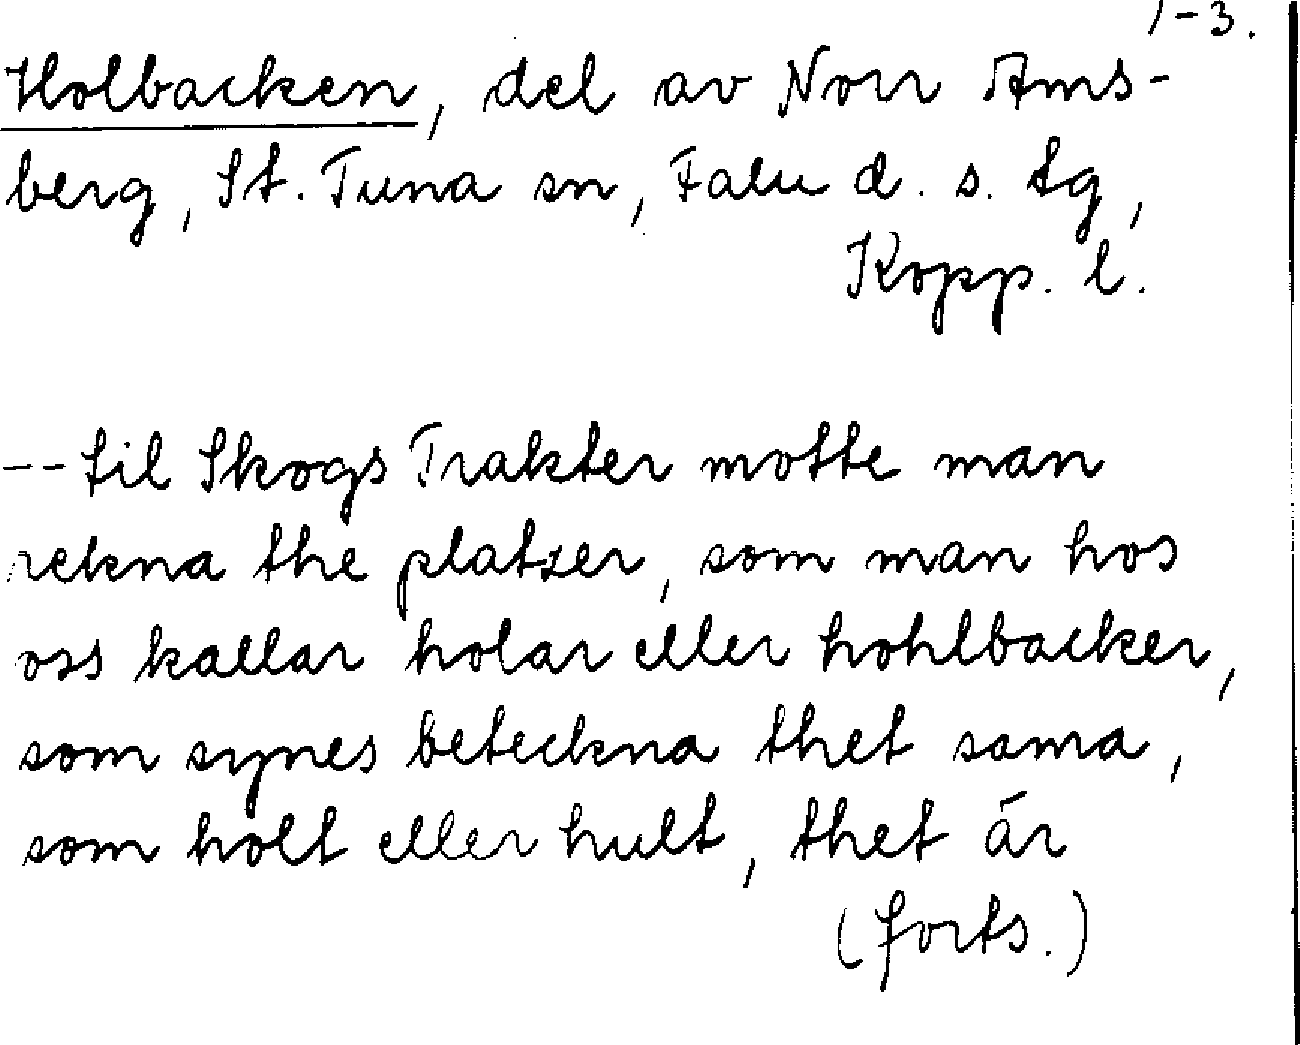 1-3.
Holbacken, del av Norr Ams-
berg, St. Tuna sn, Falu d. s. tg,
Kopp. l.
-- til Skogs Trakter motte man
rekna the platzer, som man hos
oss kallar holar eller hohlbacker,
som synes beteckna thet sama,
som holt eller hult, thet är
(forts.)